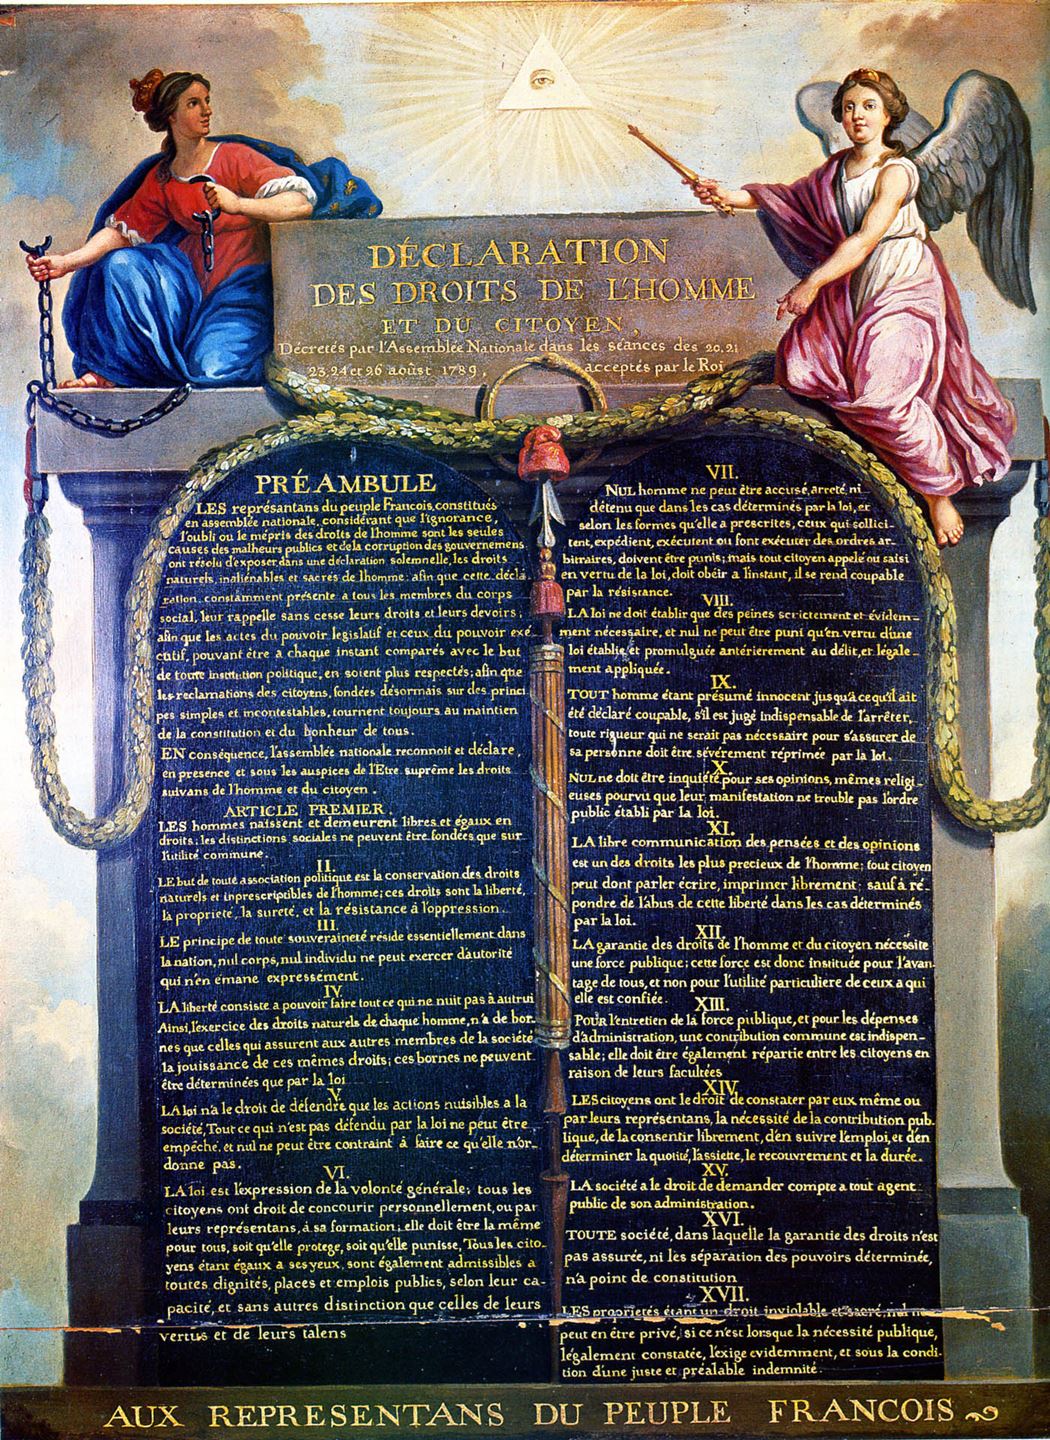 DÉCLARATION
DES DROITS DE L'HOMME
ET DU CITOYEN,
Décretés par l'Assemblée Nationale dans les séances des 20.21
23.24 et 26 août 1789, acceptés par le Roi
PRÉAMBULE
LES représantans du peuple Francois, constitués
en assemblée nationale, considérant que l'ignorance,
l'oubli ou le mépris des droits de l'homme sont les seules
causes des malheurs publics et de la corruption des gouvernemens
ont résolu d'exposer, dans une déclaration solemnelle, les droits
naturels, inaliénables et sacrés de l'homme: afin que cette décla
ration, constamment présente a tous les membres du corps
social, leur rappelle sans cesse leurs droits et leurs devoirs;
afin que les actes du pouvoir législatif et ceux du pouvoir exé
cutif, pouvant être a chaque instant comparés avec le but
de toute institution politique, en soient plus respectés; afin que
les reclamations des citoyens, fondées désormais sur des princi
pes simples et incontestables, tournent toujours au maintien
de la constitution et du bonheur de tous.
EN conséquence, l'assemblée nationale reconnoit et déclare,
en presence et sous les auspices de l'Etre suprême les droits
suivans de l'homme et du citoyen.
ARTICLE PREMIER.
LES hommes naissent et demeurent libres et égaux en
droits; les distinctions sociales ne peuvent être fondées que sur
l'utilité commune.
II.
LE but de toute association politique est la conservation des droits
naturels et inprescriptibles de l'homme; ces droits sont la liberté,
la propriété, la sureté, et la résistance à l'oppression.
III.
LE principe de toute souveraineté réside essentiellement dans
la nation, nul corps, nul individu ne peut exercer d'autorité
qui n'en émane expressément.
IV.
LA liberté consiste a pouvoir faire tout ce qui ne nuit pas à autrui
Ainsi, l'exercice des droits naturels de chaque homme, n'a de bor-
nes que celles qui assurent aux autres membres de la société
la jouissance de ces mêmes droits; ces bornes ne peuvent
être déterminées que par la loi
V.
LA loi n'a le droit de défendre que les actions nuisibles a la
société, Tout ce qui n'est pas défendu par la loi ne peut être
empêché, et nul ne peut être contraint à faire ce qu'elle n'or-
donne pas.
VI.
LA loi est l'expression de la volonté générale; tous les
citoyens ont droit de concourir personnellement, ou par
leurs représentans, à sa formation; elle doit être la même
pour tous, soit qu'elle protege, soit qu'elle punisse, Tous les cito-
yens étant égaux à ses yeux, sont également admissibles a
toutes dignités, places et emplois publics, selon leur ca-
pacité, et sans autres distinction que celles de leurs
vertus et de leurs talens
VII.
NUL homme ne peut être accusé, arreté, ni
détenu que dans les cas déterminés par la loi, et
selon les formes qu'elle a prescrites, ceux qui sollici-
tent, expédient, exécutent ou font exécuter des ordres ar-
bitraires, doivent être punis; mais tout citoyen appelé ou saisi
en vertu de la loi, doit obéir a l'instant, il se rend coupable
par la résistance.
VIII.
LA loi ne doit établir que des peines strictement et évidem-
ment nécessaire, et nul ne peut être puni qu'en vertu d'une
loi établie, et promulguée antérierement au délit, et légale-
ment appliquée.
IX.
TOUT homme étant présumé innocent jusqu'a ce qu'il ait
été déclaré coupable, s'il est jugé indispensable de l'arrêter,
toute rigueur qui ne serait pas nécessaire pour s'assurer de
sa personne doit être sévèrement réprimée par la loi.
X.
NUL ne doit être inquiété pour ses opinions, mêmes religi-
euses pourvu que leur manifestation ne trouble pas l'ordre
public établi par la loi.
XI.
LA libre communication des pensées et des opinions
est un des droits les plus precieux de l'homme; tout citoyen
peut dont parler écrire, imprimer librement; sauf à ré-
pondre de l'abus de cette liberté dans les cas déterminés
par la loi.
XII.
LA garantie des droits de l'homme et du citoyen nécessite
une force publique; cette force est donc instituée pour l'avan
tage de tous, et non pour l'utilité particuliere de ceux a qui
elle est confiée.
XIII.
POUR l'entretien de la force publique, et pour les dépenses
d'administration, une contribution commune est indispen-
sable; elle doit être également répartie entre les citoyens en
raison de leurs facultées
XIV.
LES citoyens ont le droit de constater par eux même ou
par leurs représentans, la nécessité de la contribution pub-
lique, de la consentir librement, d'en suivre l'emploi, et d'en
déterminer la quotité, l'assiette, le recouvrement et la durée.
XV.
LA société a le droit de demander compte a tout agent
public de son administration.
XVI.
TOUTE société, dans laquelle la garantie des droits n'est
pas assurée, ni les séparation des pouvoirs déterminée,
n'a point de constitution
XVII.
LES proprietés étant un droit inviolable et sacré, nul ne
peut en être privé, si ce n'est lorsque la nécessité publique,
légalement constatée, l'exige evidemment, et sous la condi-
tion d'une juste et préalable indemnité.
AUX REPRESENTANS DU PEUPLE FRANCOIS